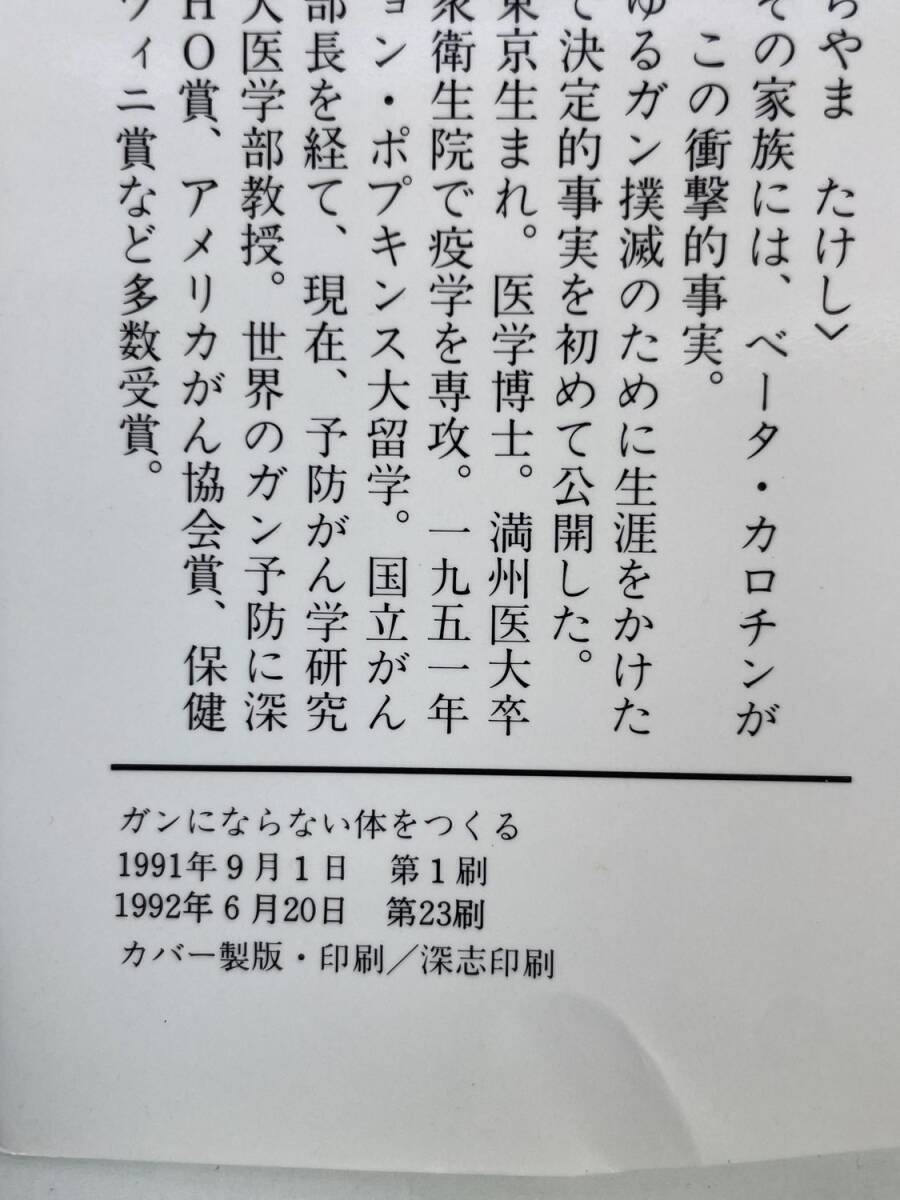 らやま　たけし〉
その家族には、ベータ・カロチンが
この衝撃的事実。
ゆるガン撲滅のために生涯をかけた
て決定的事実を初めて公開した。
東京生まれ。医学博士。満州医大卒
衆衛生院で疫学を専攻。一九五一年
ョン・ポプキンス大留学。国立がん
部長を経て、現在、予防がん学研究
大医学部教授。世界のガン予防に深
HO賞、アメリカがん協会賞、保健
ヴィニ賞など多数受賞。
ガンにならない体をつくる
1991年9月1日　第1刷
1992年6月20日　第23刷
カバー製版・印刷／深志印刷